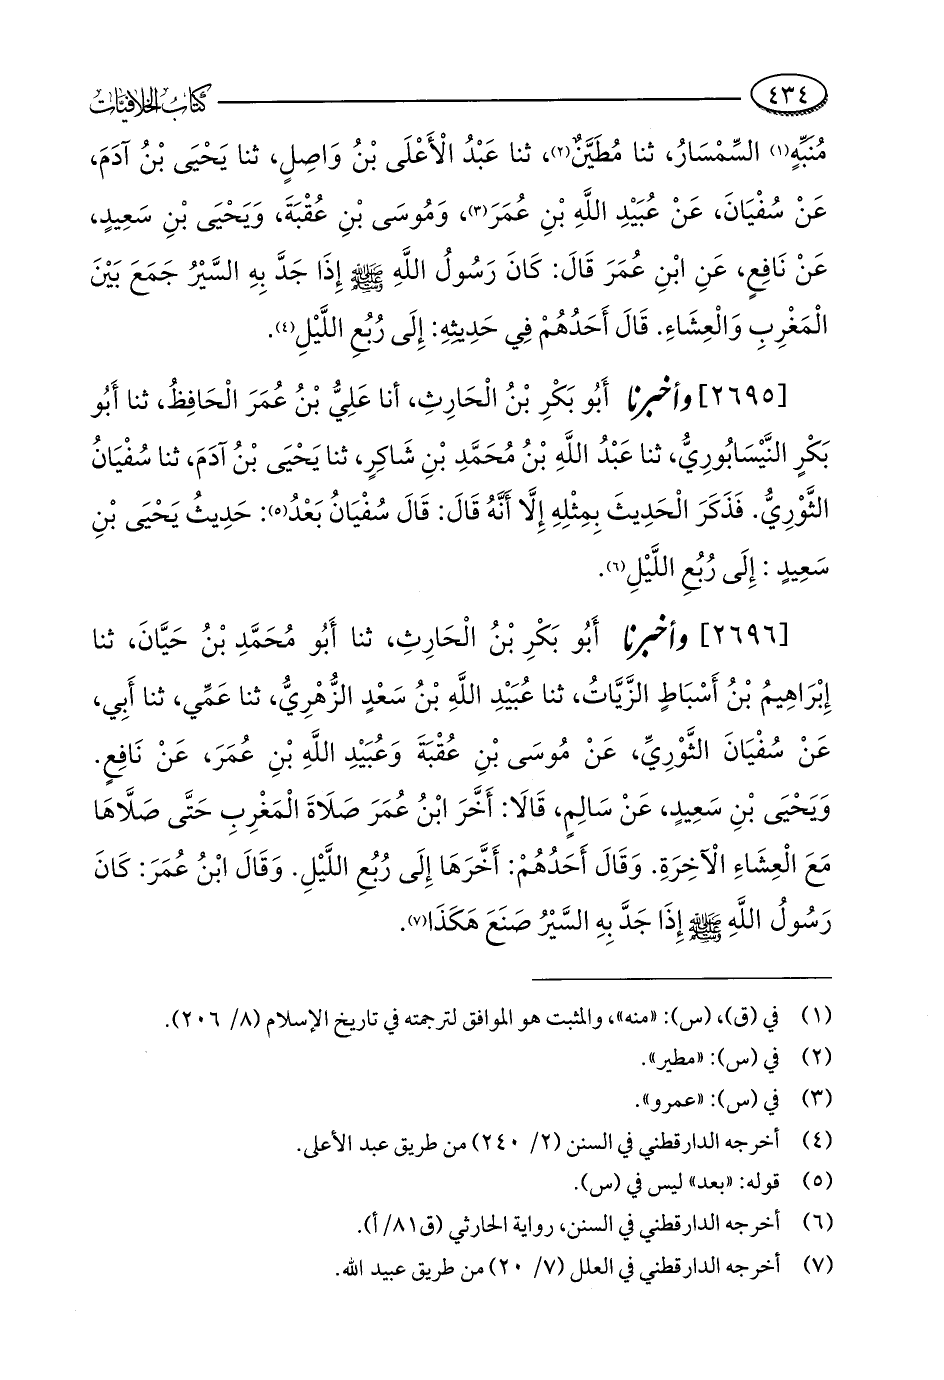 ٤٣٤ كتاب الخلافيات
مُنَبِّهٍ(١) السِّمْسَارُ، ثنا مُطَيَّنٌ(٢)، ثنا عَبْدُ الْأَعْلَى بْنُ وَاصِلٍ، ثنا يَحْيَى بْنُ آدَمَ،
عَنْ سُفْيَانَ، عَنْ عُبَيْدِ اللَّهِ بْنِ عُمَرَ(٣)، وَمُوسَى بْنِ عُقْبَةَ، وَيَحْيَى بْنِ سَعِيدٍ،
عَنْ نَافِعٍ، عَنِ ابْنِ عُمَرَ قَالَ: كَانَ رَسُولُ اللَّهِ ﷺ إِذَا جَدَّ بِهِ السَّيْرُ جَمَعَ بَيْنَ
الْمَغْرِبِ وَالْعِشَاءِ. قَالَ أَحَدُهُمْ فِي حَدِيثِهِ: إِلَى رُبُعِ اللَّيْلِ(٤).
[٢٦٩٥] وأخبرنا أَبُو بَكْرِ بْنُ الْحَارِثِ، أنا عَلِيُّ بْنُ عُمَرَ الْحَافِظُ، ثنا أَبُو
بَكْرٍ النَّيْسَابُورِيُّ، ثنا عَبْدُ اللَّهِ بْنُ مُحَمَّدِ بْنِ شَاكِرٍ، ثنا يَحْيَى بْنُ آدَمَ، ثنا سُفْيَانُ
الثَّوْرِيُّ. فَذَكَرَ الْحَدِيثَ بِمِثْلِهِ إِلَّا أَنَّهُ قَالَ: قَالَ سُفْيَانُ بَعْدُ(٥): حَدِيثُ يَحْيَى بْنِ
سَعِيدٍ : إِلَى رُبُعِ اللَّيْلِ(٦).
[٢٦٩٦] وأخبرنا أَبُو بَكْرِ بْنُ الْحَارِثِ، ثنا أَبُو مُحَمَّدِ بْنُ حَيَّانَ، ثنا
إِبْرَاهِيمُ بْنُ أَسْبَاطٍ الزَّيَّاتُ، ثنا عُبَيْدِ اللَّهِ بْنُ سَعْدٍ الزُّهْرِيُّ، ثنا عَمِّي، ثنا أَبِي،
عَنْ سُفْيَانَ الثَّوْرِيِّ، عَنْ مُوسَى بْنِ عُقْبَةَ وَعُبَيْدِ اللَّهِ بْنِ عُمَرَ، عَنْ نَافِعٍ.
وَيَحْيَى بْنِ سَعِيدٍ، عَنْ سَالِمٍ، قَالَا: أَخَّرَ ابْنُ عُمَرَ صَلَاةَ الْمَغْرِبِ حَتَّى صَلَّاهَا
مَعَ الْعِشَاءِ الْآخِرَةِ. وَقَالَ أَحَدُهُمْ: أَخَّرَهَا إِلَى رُبُعِ اللَّيْلِ. وَقَالَ ابْنُ عُمَرَ: كَانَ
رَسُولُ اللَّهِ ﷺ إِذَا جَدَّ بِهِ السَّيْرُ صَنَعَ هَكَذَا(٧).
(١) في (ق)، (س): «منه»، والمثبت هو الموافق لترجمته في تاريخ الإسلام (٨/ ٢٠٦).
(٢) في (س): «مطير».
(٣) في (س): «عمرو».
(٤) أخرجه الدارقطني في السنن (٢/ ٢٤٠) من طريق عبد الأعلى.
(٥) قوله: «بعد» ليس في (س).
(٦) أخرجه الدارقطني في السنن، رواية الحارثي (ق٨١/ أ).
(٧) أخرجه الدارقطني في العلل (٧/ ٢٠) من طريق عبيد الله.